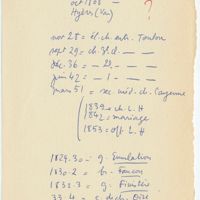 oct 1808 —
Hyères (Var)
?
nov 28 = él. ch. ent. Toulon
sept 29 = ch. 3 cl — — —
déc. 36 = — 2 — — —
juin 42 = — 1 — — —
mars 51 = sec. méd. ch. Cayenne
1839 = ch. L. H
1842 = mariage
1853 = off. L. H
1829.30 = g. Emulation
1830-2 = b. Faucon
1832-3 = g. Finistère
33-4 = Oise